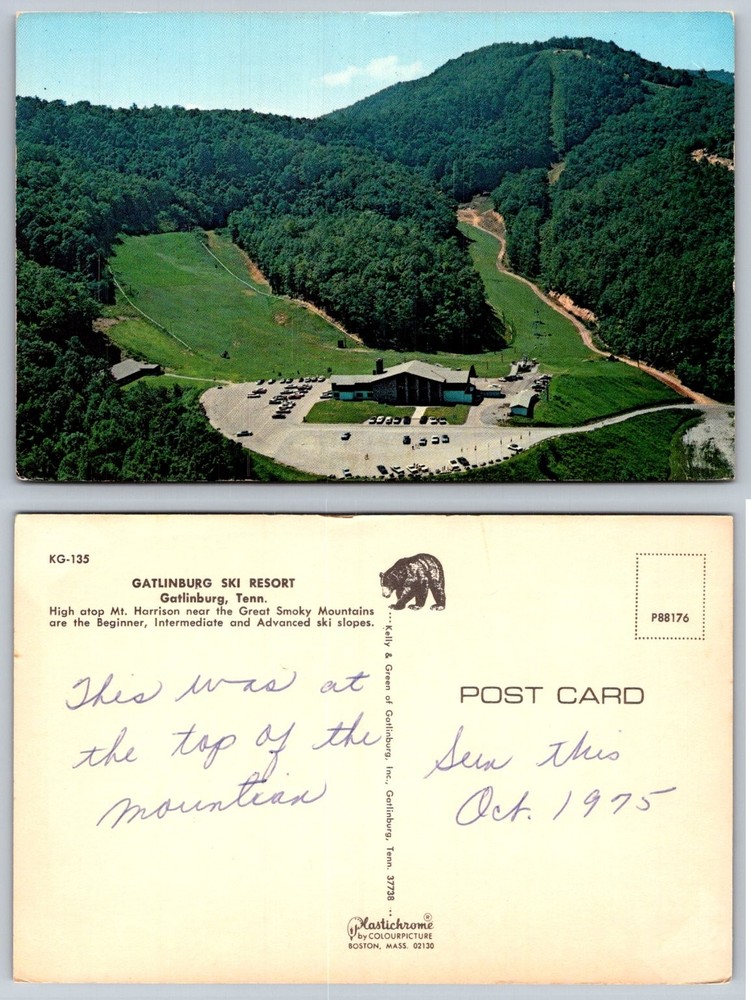 KG-135
GATLINBURG SKI RESORT
Gatlinburg, Tenn.
High atop Mt. Harrison near the Great Smoky Mountains
are the Beginner, Intermediate and Advanced ski slopes.
This was at
the top of the
mountian
Kelly & Green of Gatlinburg, Inc., Gatlinburg, Tenn. 37738
P88176
POST CARD
Seen this
Oct. 1975
Plastichrome ®
by COLOURPICTURE
BOSTON, MASS. 02130